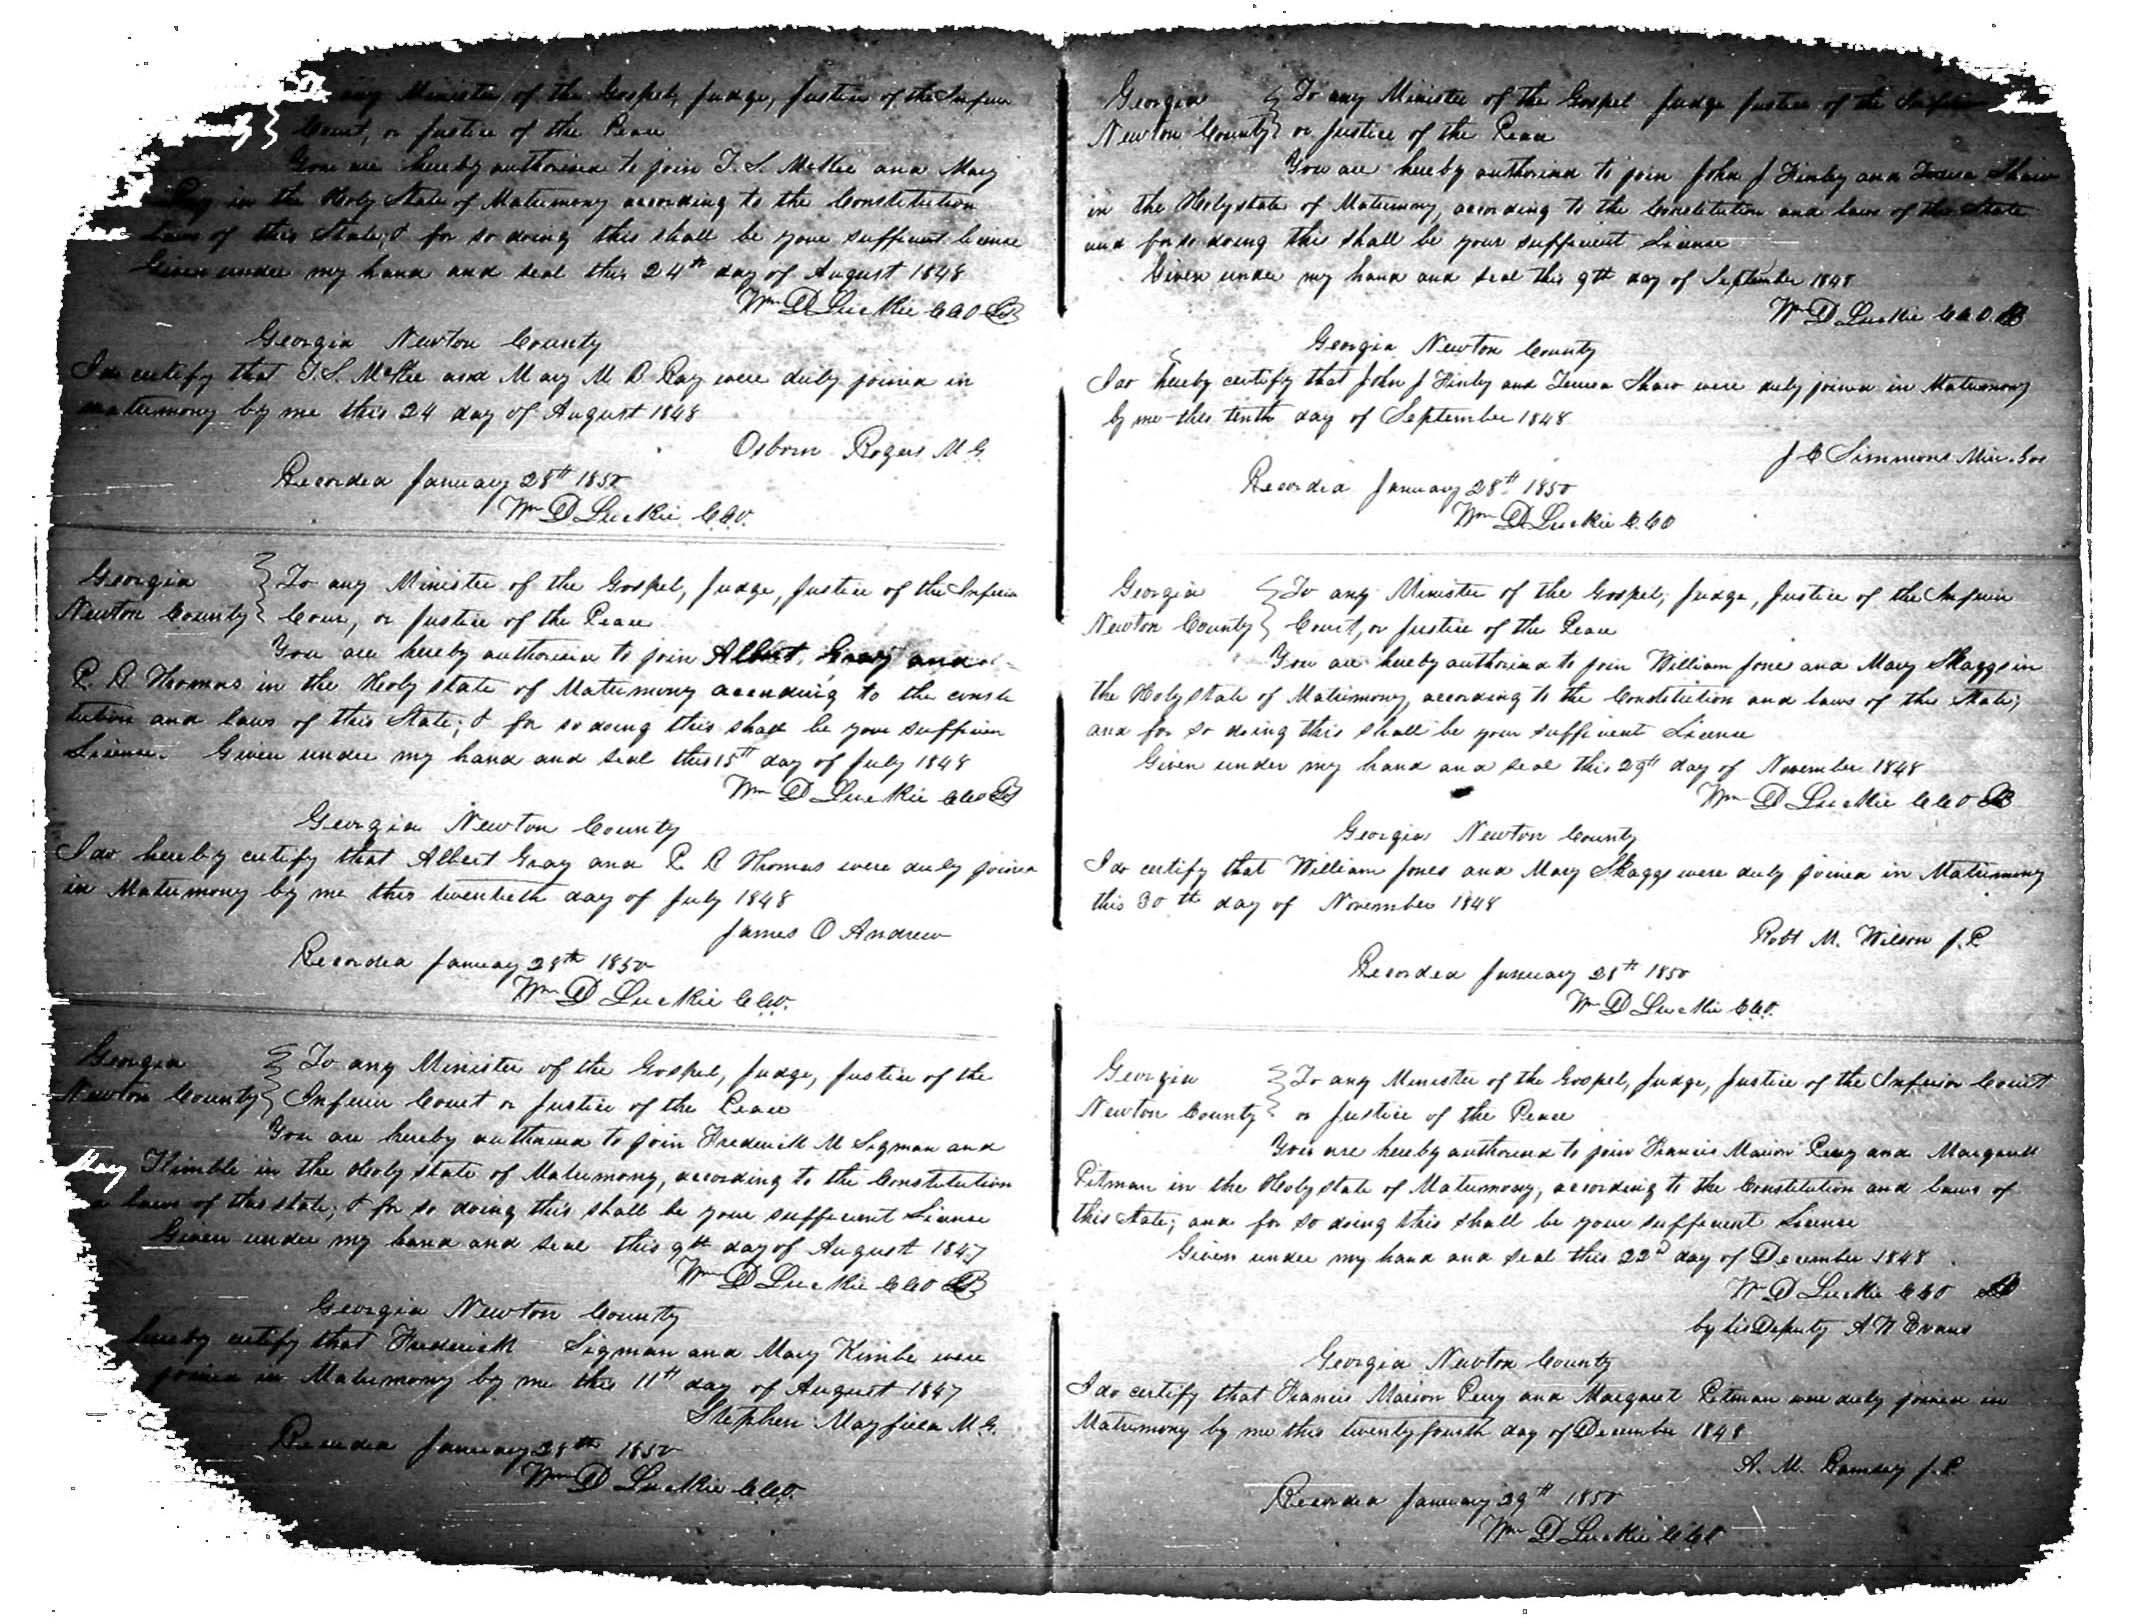 any Minister of the Gospel, Judge, Justice of the Inferior
Court, or Justice of the Peace
You are hereby authorised to join T. S. McKee and Mary
Ray in the Holy State of Matrimony according to the Constitution
Laws of this State; & for so doing this shall be your sufficient License
Given under my hand and seal this 24th day of August 1848
Wm D Luckie C C O LS
Georgia Newton County
I do certify that T. S. McKee and Mary M D Ray were duly joined in
matrimony by me this 24 day of August 1848
Osborn Rogers M. G.
Recorded January 28th 1850
Wm D Luckie C.C.O.
Georgia } To any Minister of the Gospel, Judge, Justice of the Inferior
Newton County } Cour, or Justice of the Peace
You are hereby authorised to join Albert Gray and
P. D Thomas in the Holy state of Matrimony according to the consti
tution and laws of this State; & for so doing this shall be your sufficien
License. Given under my hand and seal this 15th day of July 1848
Wm D Luckie C C O LS
Georgia Newton County
I do hereby certify that Albert Gray and P. D Thomas were duly joined
in Matrimony by me this twentieth day of July 1848
James O Andrew
Recorded January 28th 1850
Wm D Luckie C.C.O.
Georgia } To any Minister of the Gospel, Judge, Justice of the
Newton County } Inferior Court or Justice of the Peace
You are hereby authorised to join Frederick M Sigman and
Mary Kimble in the Holy state of Matrimony, according to the Constitution
laws of this state; & for so doing this shall be your sufficient License
Given under my hand and seal this 9th day of August 1847
Wm D Luckie C C O LS
Georgia Newton County
hereby certify that Frederick Sigman and Mary Kimble were
joined in Matrimony by me this 11th day of August 1847
Stephen Mayfield M. G.
Recorded January 28th 1850
Wm D Luckie C.C.O.
Georgia } To any Minister of the Gospel Judge Justice of the Inferior
Newton County } or Justice of the Peace
You are hereby authorised to join John J Finley and Teresa Shaw
in the Holy state of Matrimony, according to the Constitution and laws of this State
and for so doing this shall be your sufficient License
Given under my hand and seal this 9th day of September 1848
Wm D Luckie C C O. LS
Georgia Newton County
I do hereby certify that John J Finly and Teresa Shaw were duly joined in Matrimony
by me this tenth day of September 1848
J C Simmons Min. Gos
Recorded January 28th 1850
Wm D Luckie C. C O
Georgia } To any Minister of the Gospel, Judge, Justice of the Inferior
Newton County } Court, or Justice of the Peace
You are hereby authorised to join William Jones and Mary Skaggs in
the Holy state of Matrimony, according to the Constitution and laws of this State;
and for so doing this shall be your sufficient License
Given under my hand and seal this 29th day of November 1848
Wm D Luckie C C O LS
Georgia Newton County
I do certify that William Jones and Mary Skaggs were duly joined in Matrimony
this 30th day of November 1848
Robt M. Wilson J. P.
Recorded January 28th 1850
Wm D Luckie C.C.O.
Georgia } To any Minister of the Gospel, Judge, Justice of the Inferior Court
Newton County } or Justice of the Peace
You are hereby authorised to join Francis Marion Perry and Margarett
Pitman in the Holy state of Matrimony, according to the Constitution and laws of
this state; and for so doing this shall be your sufficient License
Given under my hand and seal this 22d day of December 1848
Wm D Luckie C C O LS
by his Deputy A N Evans
Georgia Newton County
I do certify that Francis Marion Perry and Margaret Pitman were duly joined in
Matrimony by me this twenty fourth day of December 1848
A. M. Ramsey J. P.
Recorded January 29th 1850
Wm D Luckie C C O